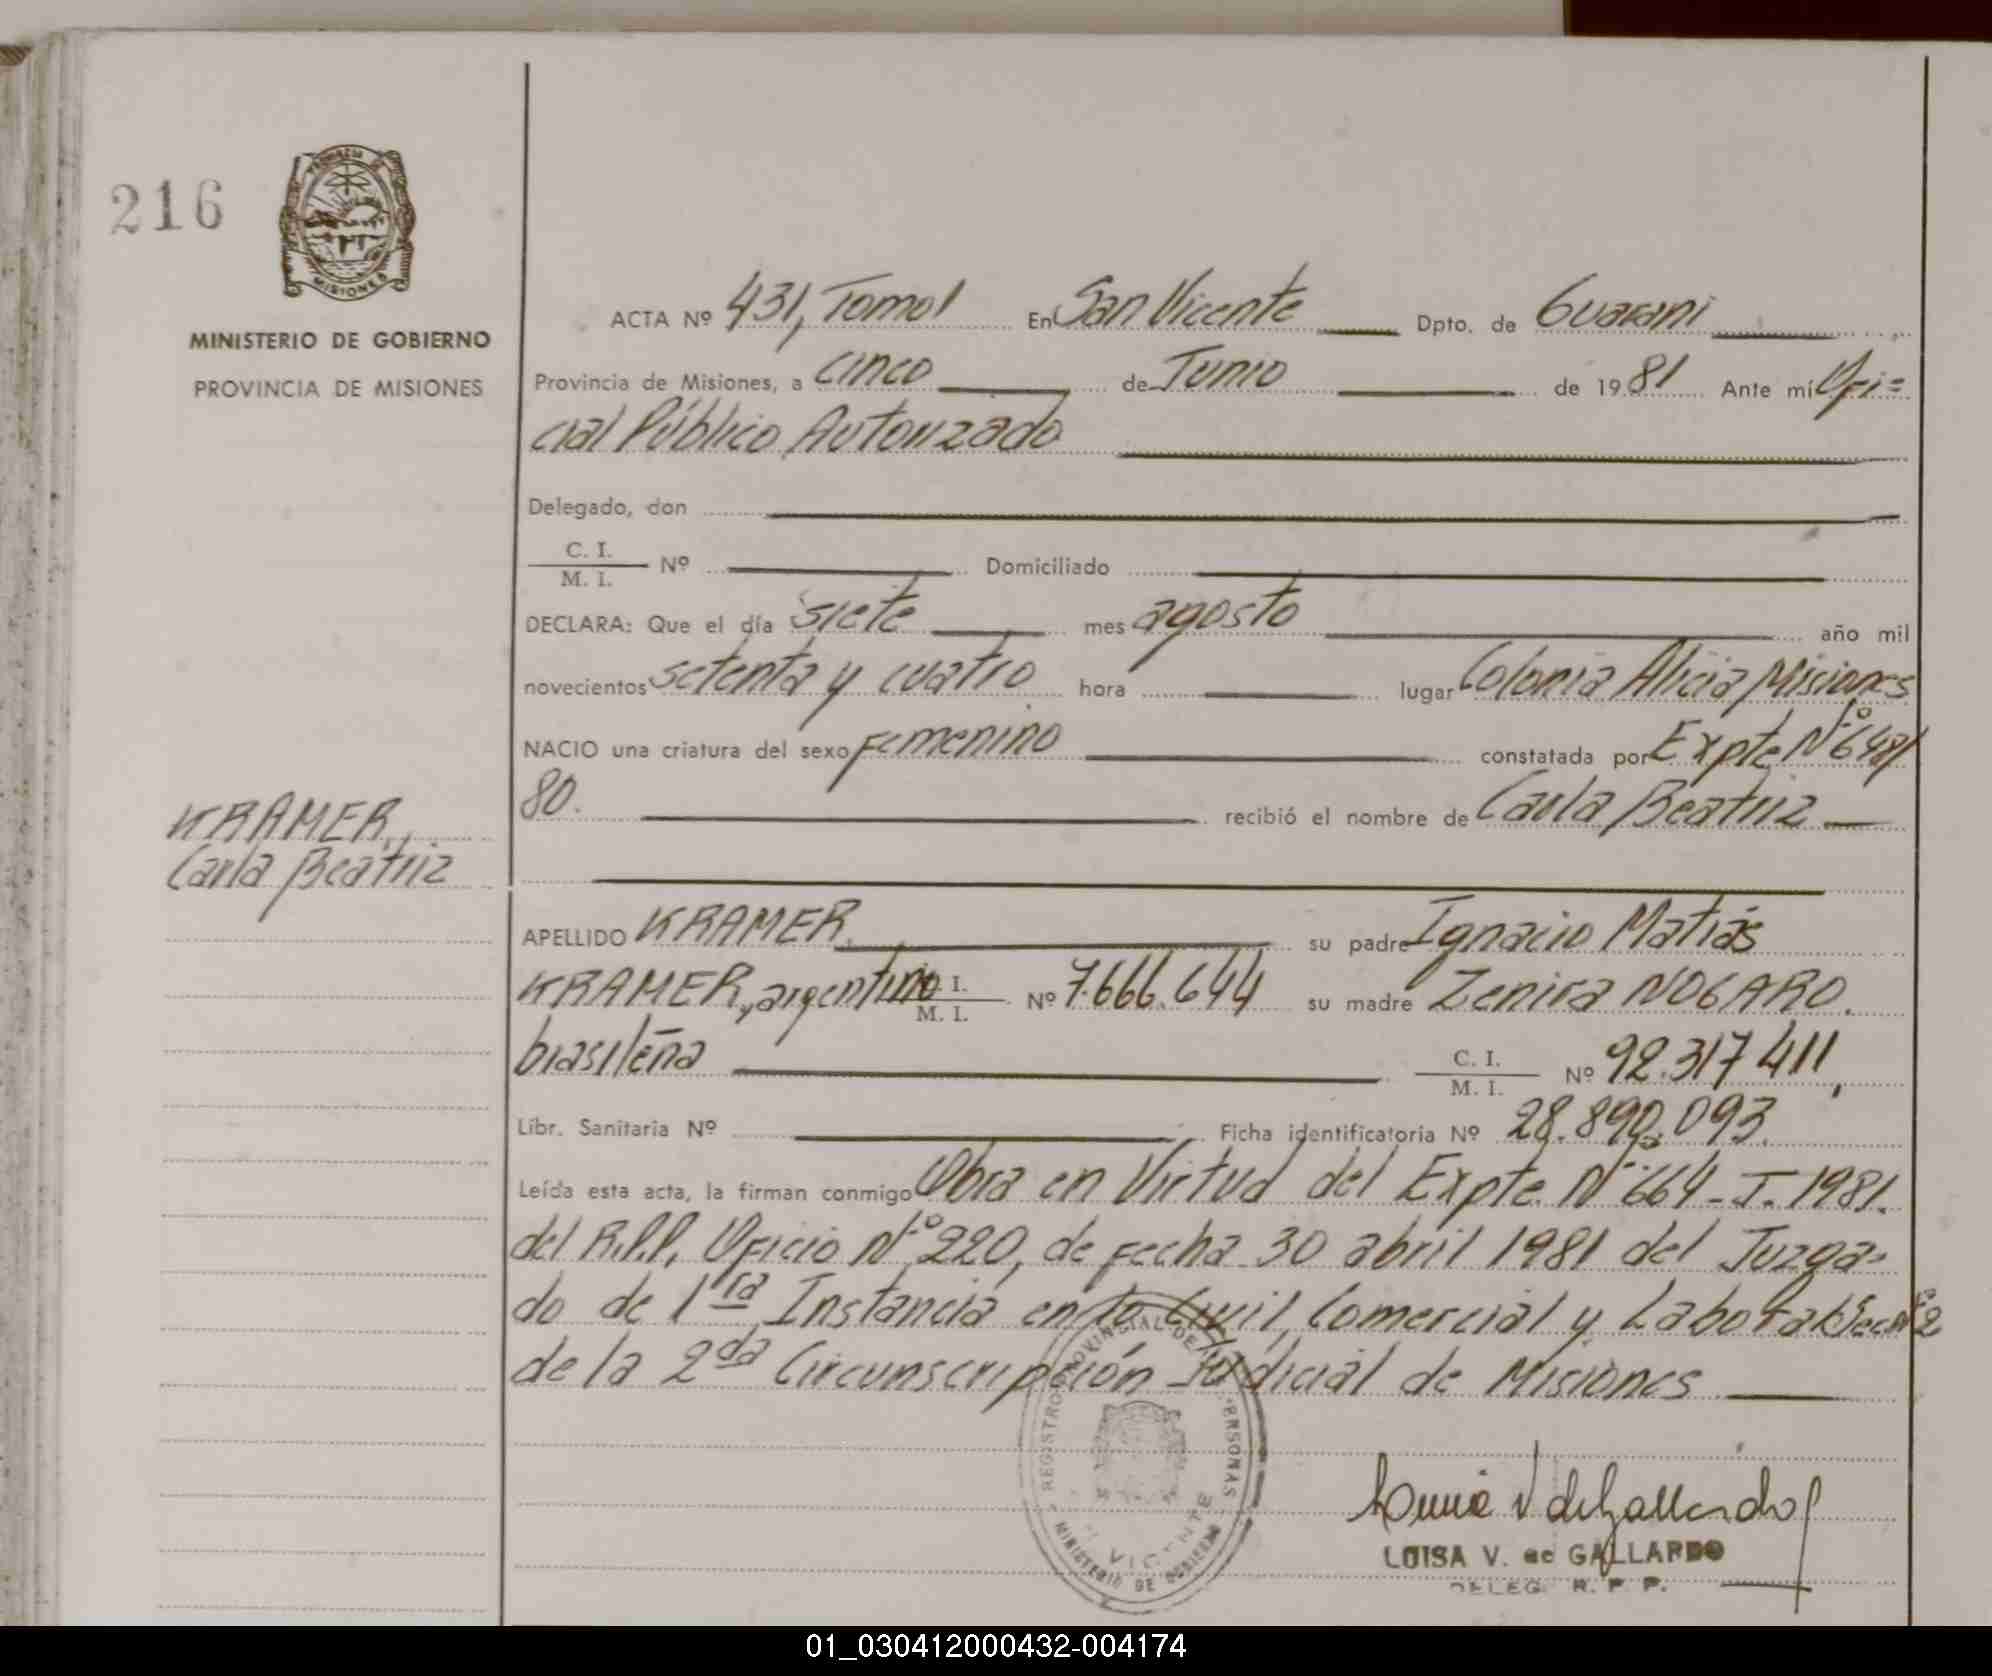 216
PROVINCIA DE
MISIONES
MINISTERIO DE GOBIERNO
PROVINCIA DE MISIONES
ACTA Nº 431, Tomo I En San Vicente Dpto. de Guarani
Provincia de Misiones, a cinco de Junio de 1981 Ante mí Ofi=
cial Público Autorizado
Delegado, don
C. I.
M. I. Nº Domiciliado
DECLARA: Que el día siete mes agosto año mil
novecientos setenta y cuatro hora lugar Colonia Alicia Misiones
NACIO una criatura del sexo femenino constatada por Expte Nº 648/
80. recibió el nombre de Carla Beatriz
KRAMER,
Carla Beatriz
APELLIDO KRAMER, su padre Ignacio Matiás
KRAMER, argentino C. I.
M. I. Nº 7.666.644 su madre Zenira NOGARO.
brasileña C. I.
M. I. Nº 92.317411,
Libr. Sanitaria Nº Ficha identificatoria Nº 28.890.093.
Leída esta acta, la firman conmigo Obra en Virtud del Expte. Nº 664-I-1981.
del R.P.P. Oficio Nº 220, de fecha 30 abril 1981 del Juzga=
do de 1ra Instancia en lo Civil, Comercial y Laboral Sec Nº 2
de la 2da Circunscripción Judicial de Misiones
REGISTRO PROVINCIAL DE PERSONAS
VICENTE
MINISTERIO DE GOBIERNO
Luisa V de Gallardo
LUISA V. de GALLARDO
DELEG. R. P. P.
01_030412000432-004174